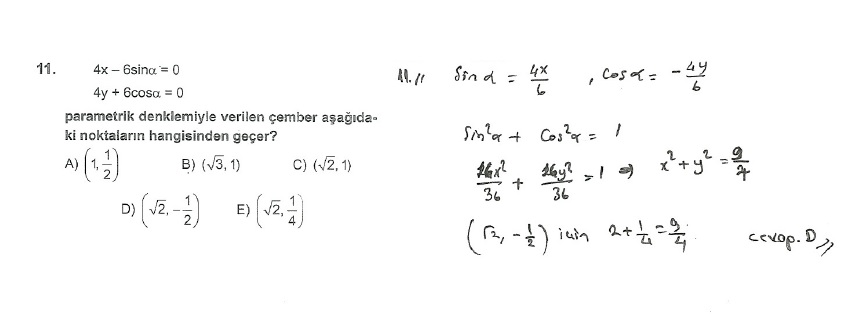 11. 4x – 6sinα = 0
4y + 6cosα = 0
parametrik denklemiyle verilen çember aşağıda-
ki noktaların hangisinden geçer?
A) (1, 1/2) B) (√3, 1) C) (√2, 1)
D) (√2, -1/2) E) (√2, 1/4)
11. // Sin α = 4x/6 , Cosα = - 4y/6
Sin²α + Cos²α = 1
16x²/36 + 16y²/36 = 1 ⇒ x² + y² = 9/4
(√2, -1/2) için 2 + 1/4 = 9/4 cevap. D //